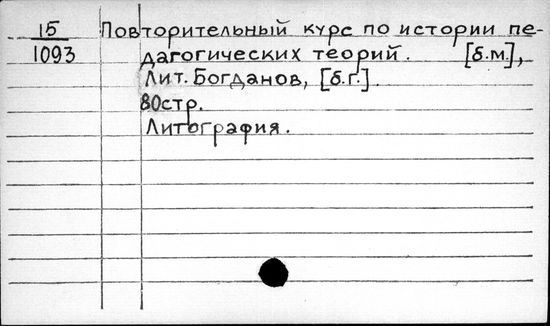 15 Повторительный курс по истории пе-
1093 дагогических теорий. [б.м.],
Лит. Богданов, [б.г.].
80стр.
Литография.